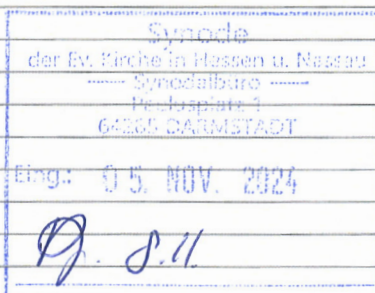 Synode
der Ev. Kirche in Hessen u. Nassau
Synodalbüro
Paulusplatz 1
64285 DARMSTADT
Eing.: 05. NOV. 2024